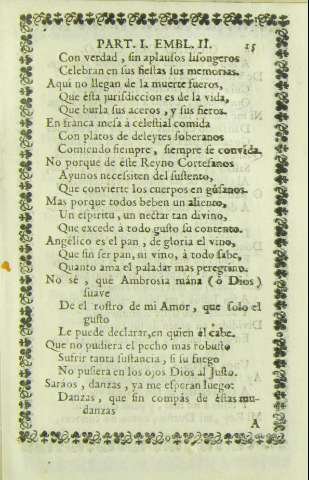 PART. I. EMBL. II. 25
Con verdad, sin aplausos lisongeros
Celebran en sus fiestas sus memorias.
Aqui no llegan de la muerte fueros,
Que ésta jurisdiccion es de la vida,
Que burla sus aceros, y sus fieros.
En franca mesa à celestial comida
Con platos de deleytes soberanos
Comiendo siempre, siempre se convida.
No porque de éste Reyno Cortesanos
Ayunos necessiten del sustento,
Que convierte los cuerpos en gusanos.
Mas porque todos beben un aliento,
Un espiritu, un nectar tan divino,
Que excede à todo gusto su contento.
Angélico es el pan, de gloria el vino,
Que sin ser pan, ni vino, à todo sabe,
Quanto ama el paladar mas peregrino.
No sé, que Ambrosia mána (ò Dios)
suave
De el rostro de mi Amor, que solo el
gusto
Le puede declarar, en quien él cabe.
Que no pudiera el pecho mas robusto
Sufrir tanta sustancia, si su fuego
No pusiera en los ojos Dios al Justo.
Saraos, danzas, ya me esperan luego:
Danzas, que sin compás de éstas mu-
danzas
A